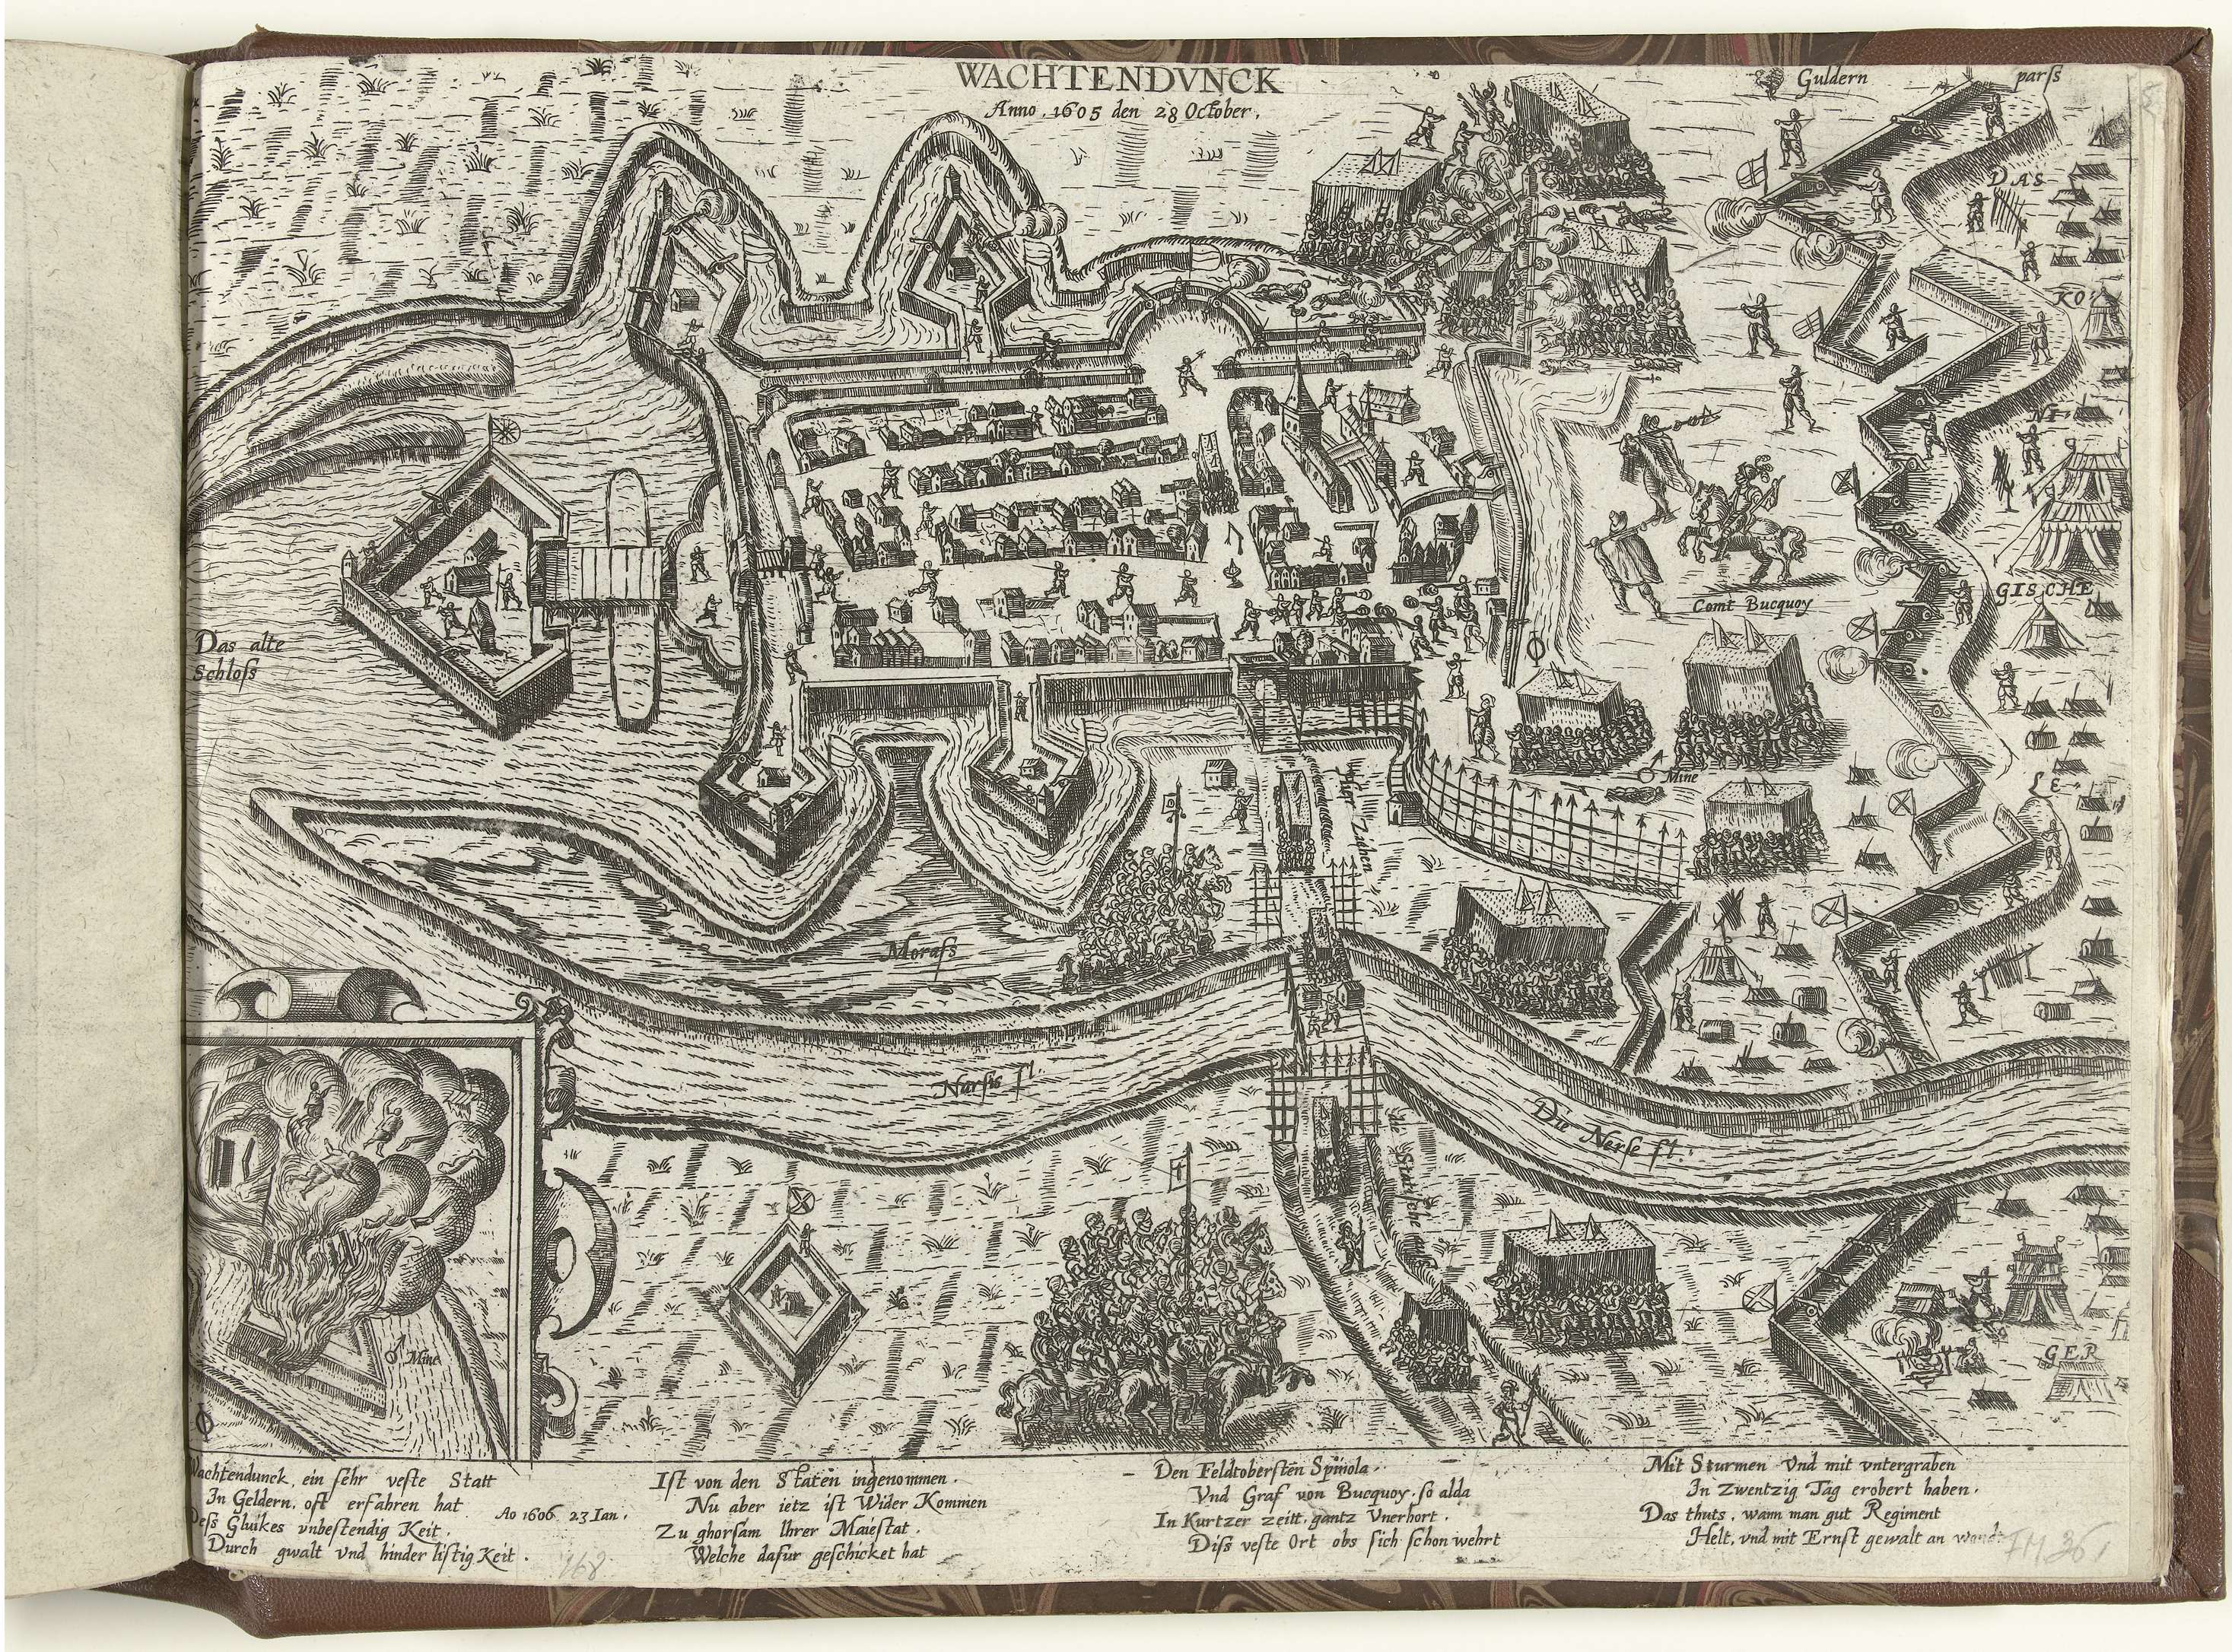 WACHTENDVNCK
Anno . 1605 den 28 October .
Guldern
parſs
DAS
KO
NI
GISCHE
LE
GER
Comt Bucquoy
Mine
Das alte
Schloſs
Moraſs
Ziehen
Nerſis fl.
Die Nerſe fl.
Die Statiſche
Mine
Wachtendunck, ein ſehr veſte Statt
In Geldern, oft erfahren hat
Deſs Glukes vnbeſtendig Keit,
Durch gwalt vnd hinder liſtig Keit .
Ao 1606 23 Ian .
Iſt von den Staten ingenommen .
Nu aber ietz iſt Wider Kommen
Zu ghorſam Ihrer Maieſtat .
Welche dafur geſchicket hat
Den Feldtoberſten Spinola .
Vnd Graf von Bucquoy, ſo alda
In Kurtzer zeitt, gantz Vnerhort .
Diſs veſte Ort obs ſich ſchon wehrt
Mit Sturmen Vnd mit vntergraben
In Zwentzig Tag erobert haben .
Das thuts, wann man gut Regiment
Helt, vnd mit Ernſt gewalt an wend
168